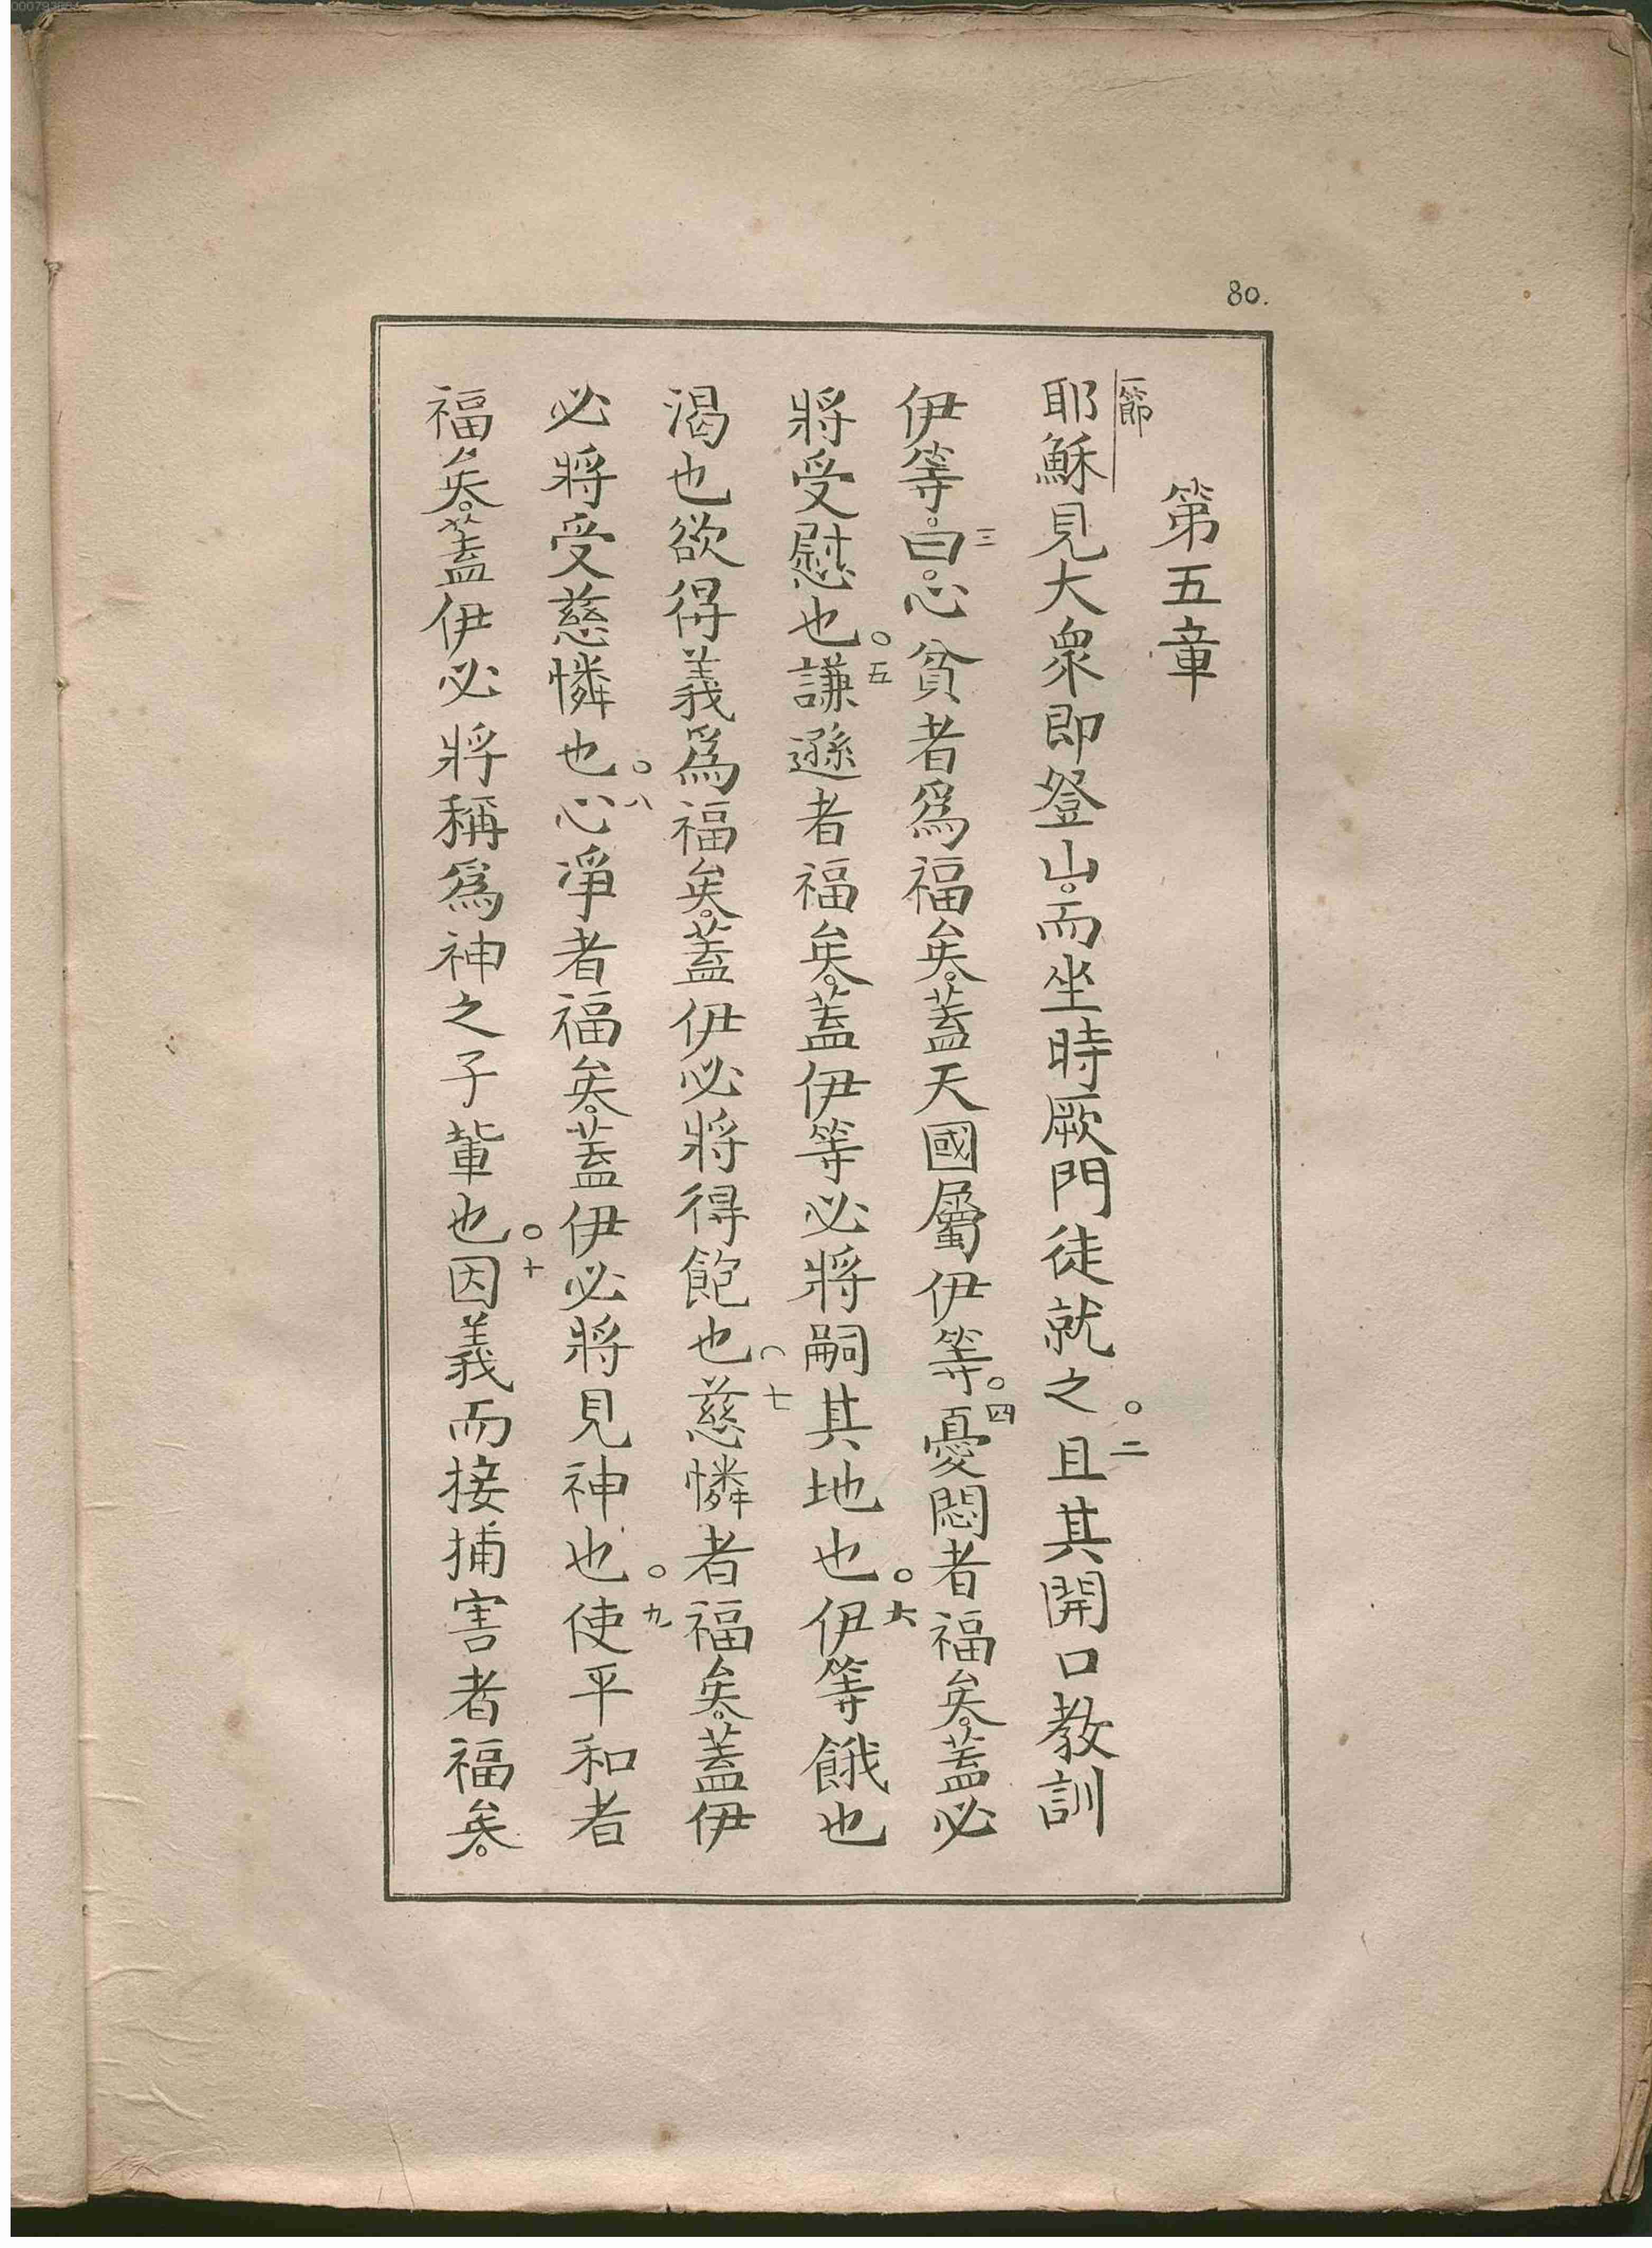 80.
第五章
一節
耶穌見大衆即登山。而坐時厥門徒就之。二且其開口教訓
伊等。三曰。心貧者爲福矣。蓋天國屬伊等。四憂悶者福矣。蓋必
將受慰也。五謙遜者福矣。蓋伊等必將嗣其地也。六伊等餓也
渴也欲得義爲福矣。蓋伊必將得飽也。七慈憐者福矣。蓋伊
必將受慈憐也。八心淨者福矣。蓋伊必將見神也。九使平和者
福矣。蓋伊必將稱爲神之子輩也。十因義而接捕害者福矣。